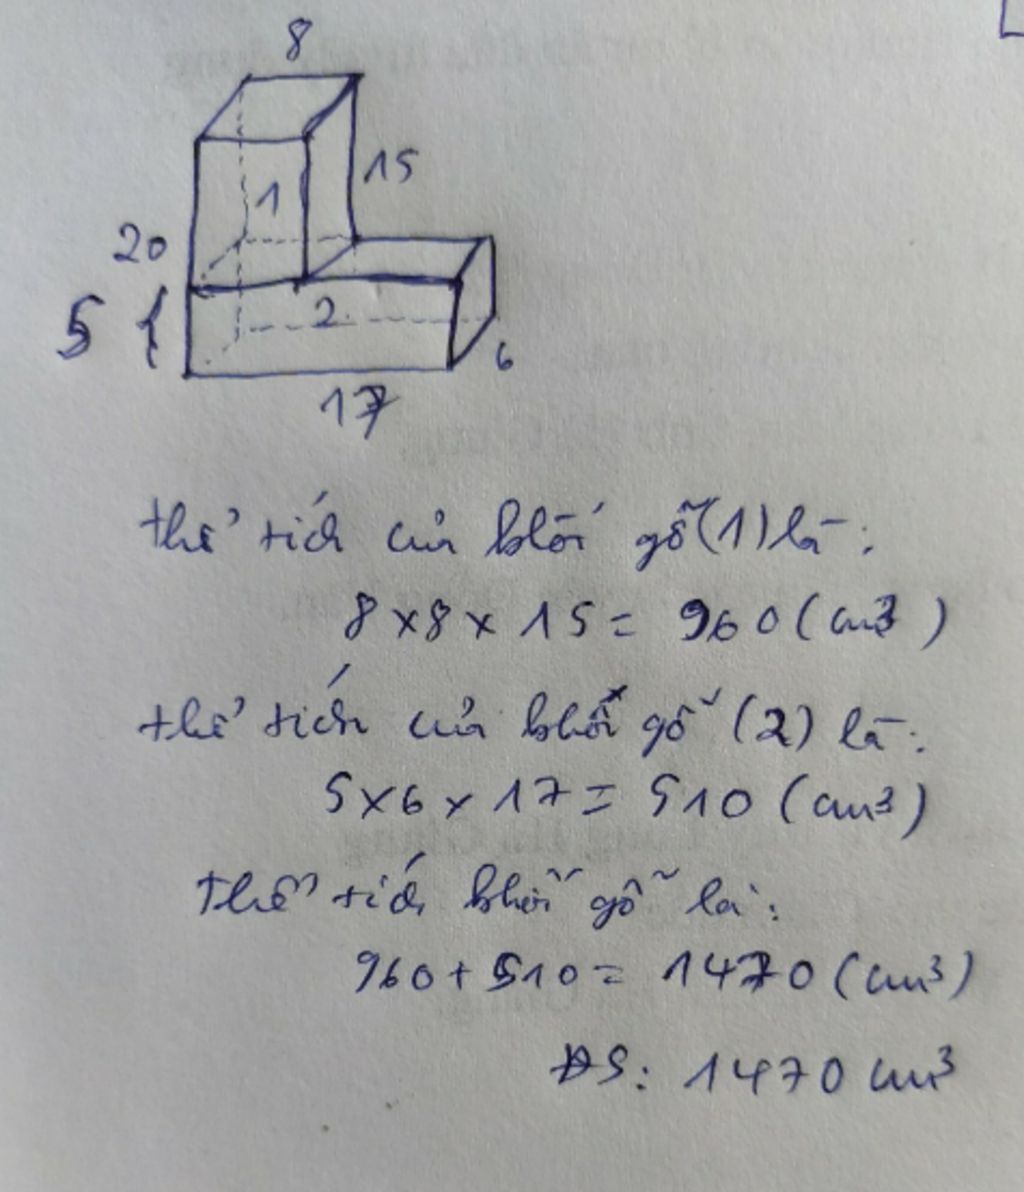 8
1
15
20
5
2
6
17
thể tích của khối gỗ (1) là:
8 x 8 x 15 = 960 (cm³)
thể tích của khối gỗ (2) là:
5 x 6 x 17 = 510 (cm³)
Thể tích khối gỗ là:
960 + 510 = 1470 (cm³)
ĐS: 1470 cm³